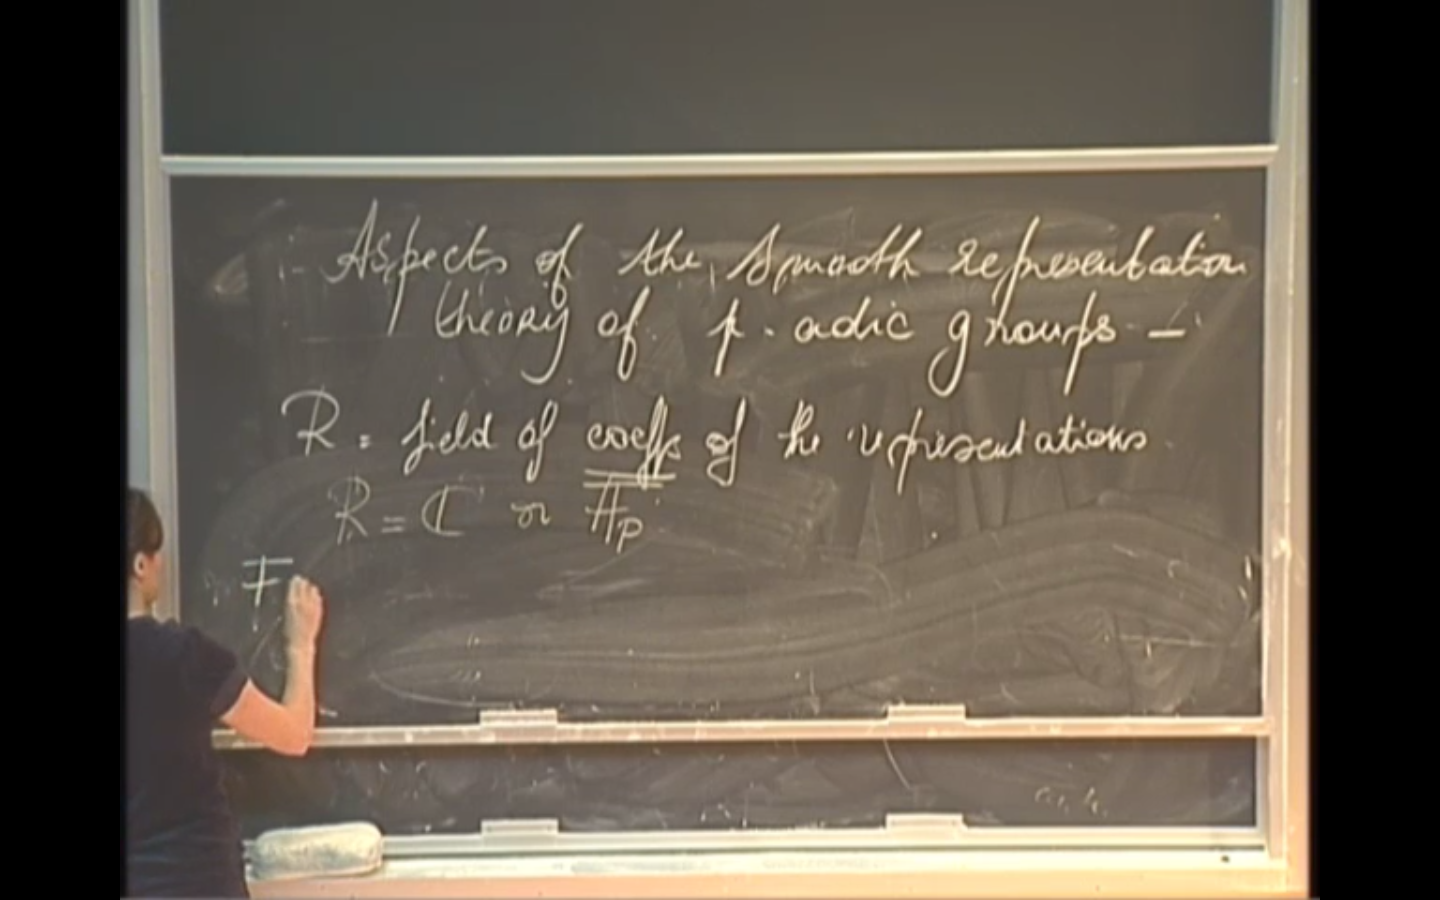 Aspects of the smooth representation
theory of p-adic groups -
R = field of coeffs of the representations
R = ℂ or \overline{𝔽}_p
F